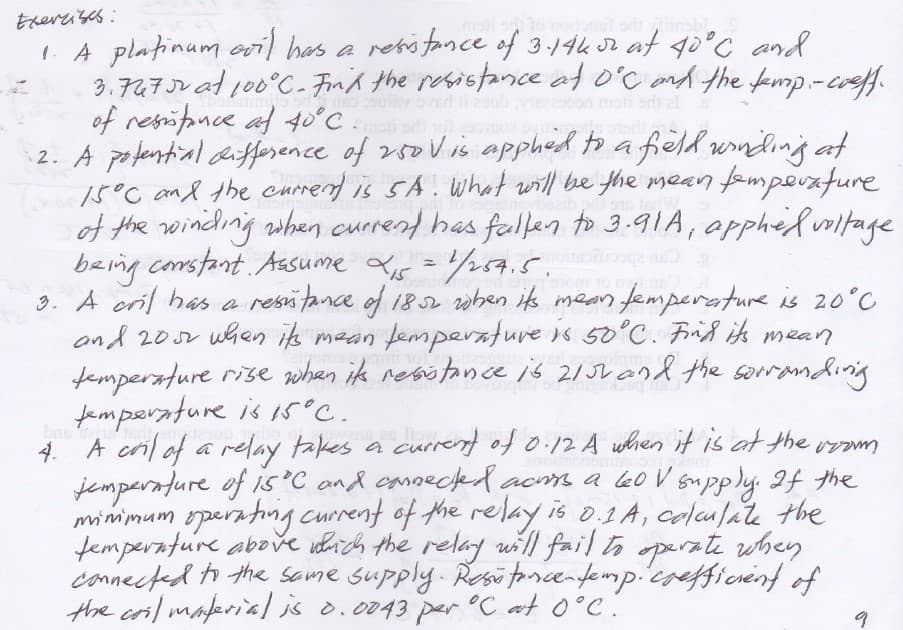 Exercises:
1. A platinum coil has a resistance of 3.146 Ω at 40°C and
3.767 Ω at 100°C. Find the resistance at 0°C and the temp.-coeff.
of resistance at 40°C.
2. A potential difference of 250 V is applied to a field winding at
15°C and the current is 5A. What will be the mean temperature
of the winding when current has fallen to 3.91A, applied voltage
being constant. Assume α15 = 1/254.5.
3. A coil has a resistance of 18 Ω when its mean temperature is 20°C
and 20 Ω when its mean temperature is 50°C. Find its mean
temperature rise when its resistance is 21 Ω and the sorrounding
temperature is 15°C.
4. A coil of a relay takes a current of 0.12 A when it is at the room
temperature of 15°C and connected across a 60 V supply. If the
minimum operating current of the relay is 0.1 A, calculate the
temperature above which the relay will fail to operate when
connected to the same supply. Resistance-temp. coefficient of
the coil material is 0.0043 per °C at 0°C.
9